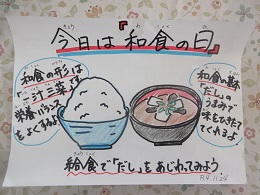 今日は『和食の日』
和食の形は
「一汁三菜」
栄養バランス
をよくするよ
和食の基本
「だし」の
うまみで
味をひきたて
てくれるよ
給食で「だし」をあじわってみよう
R4.11.24